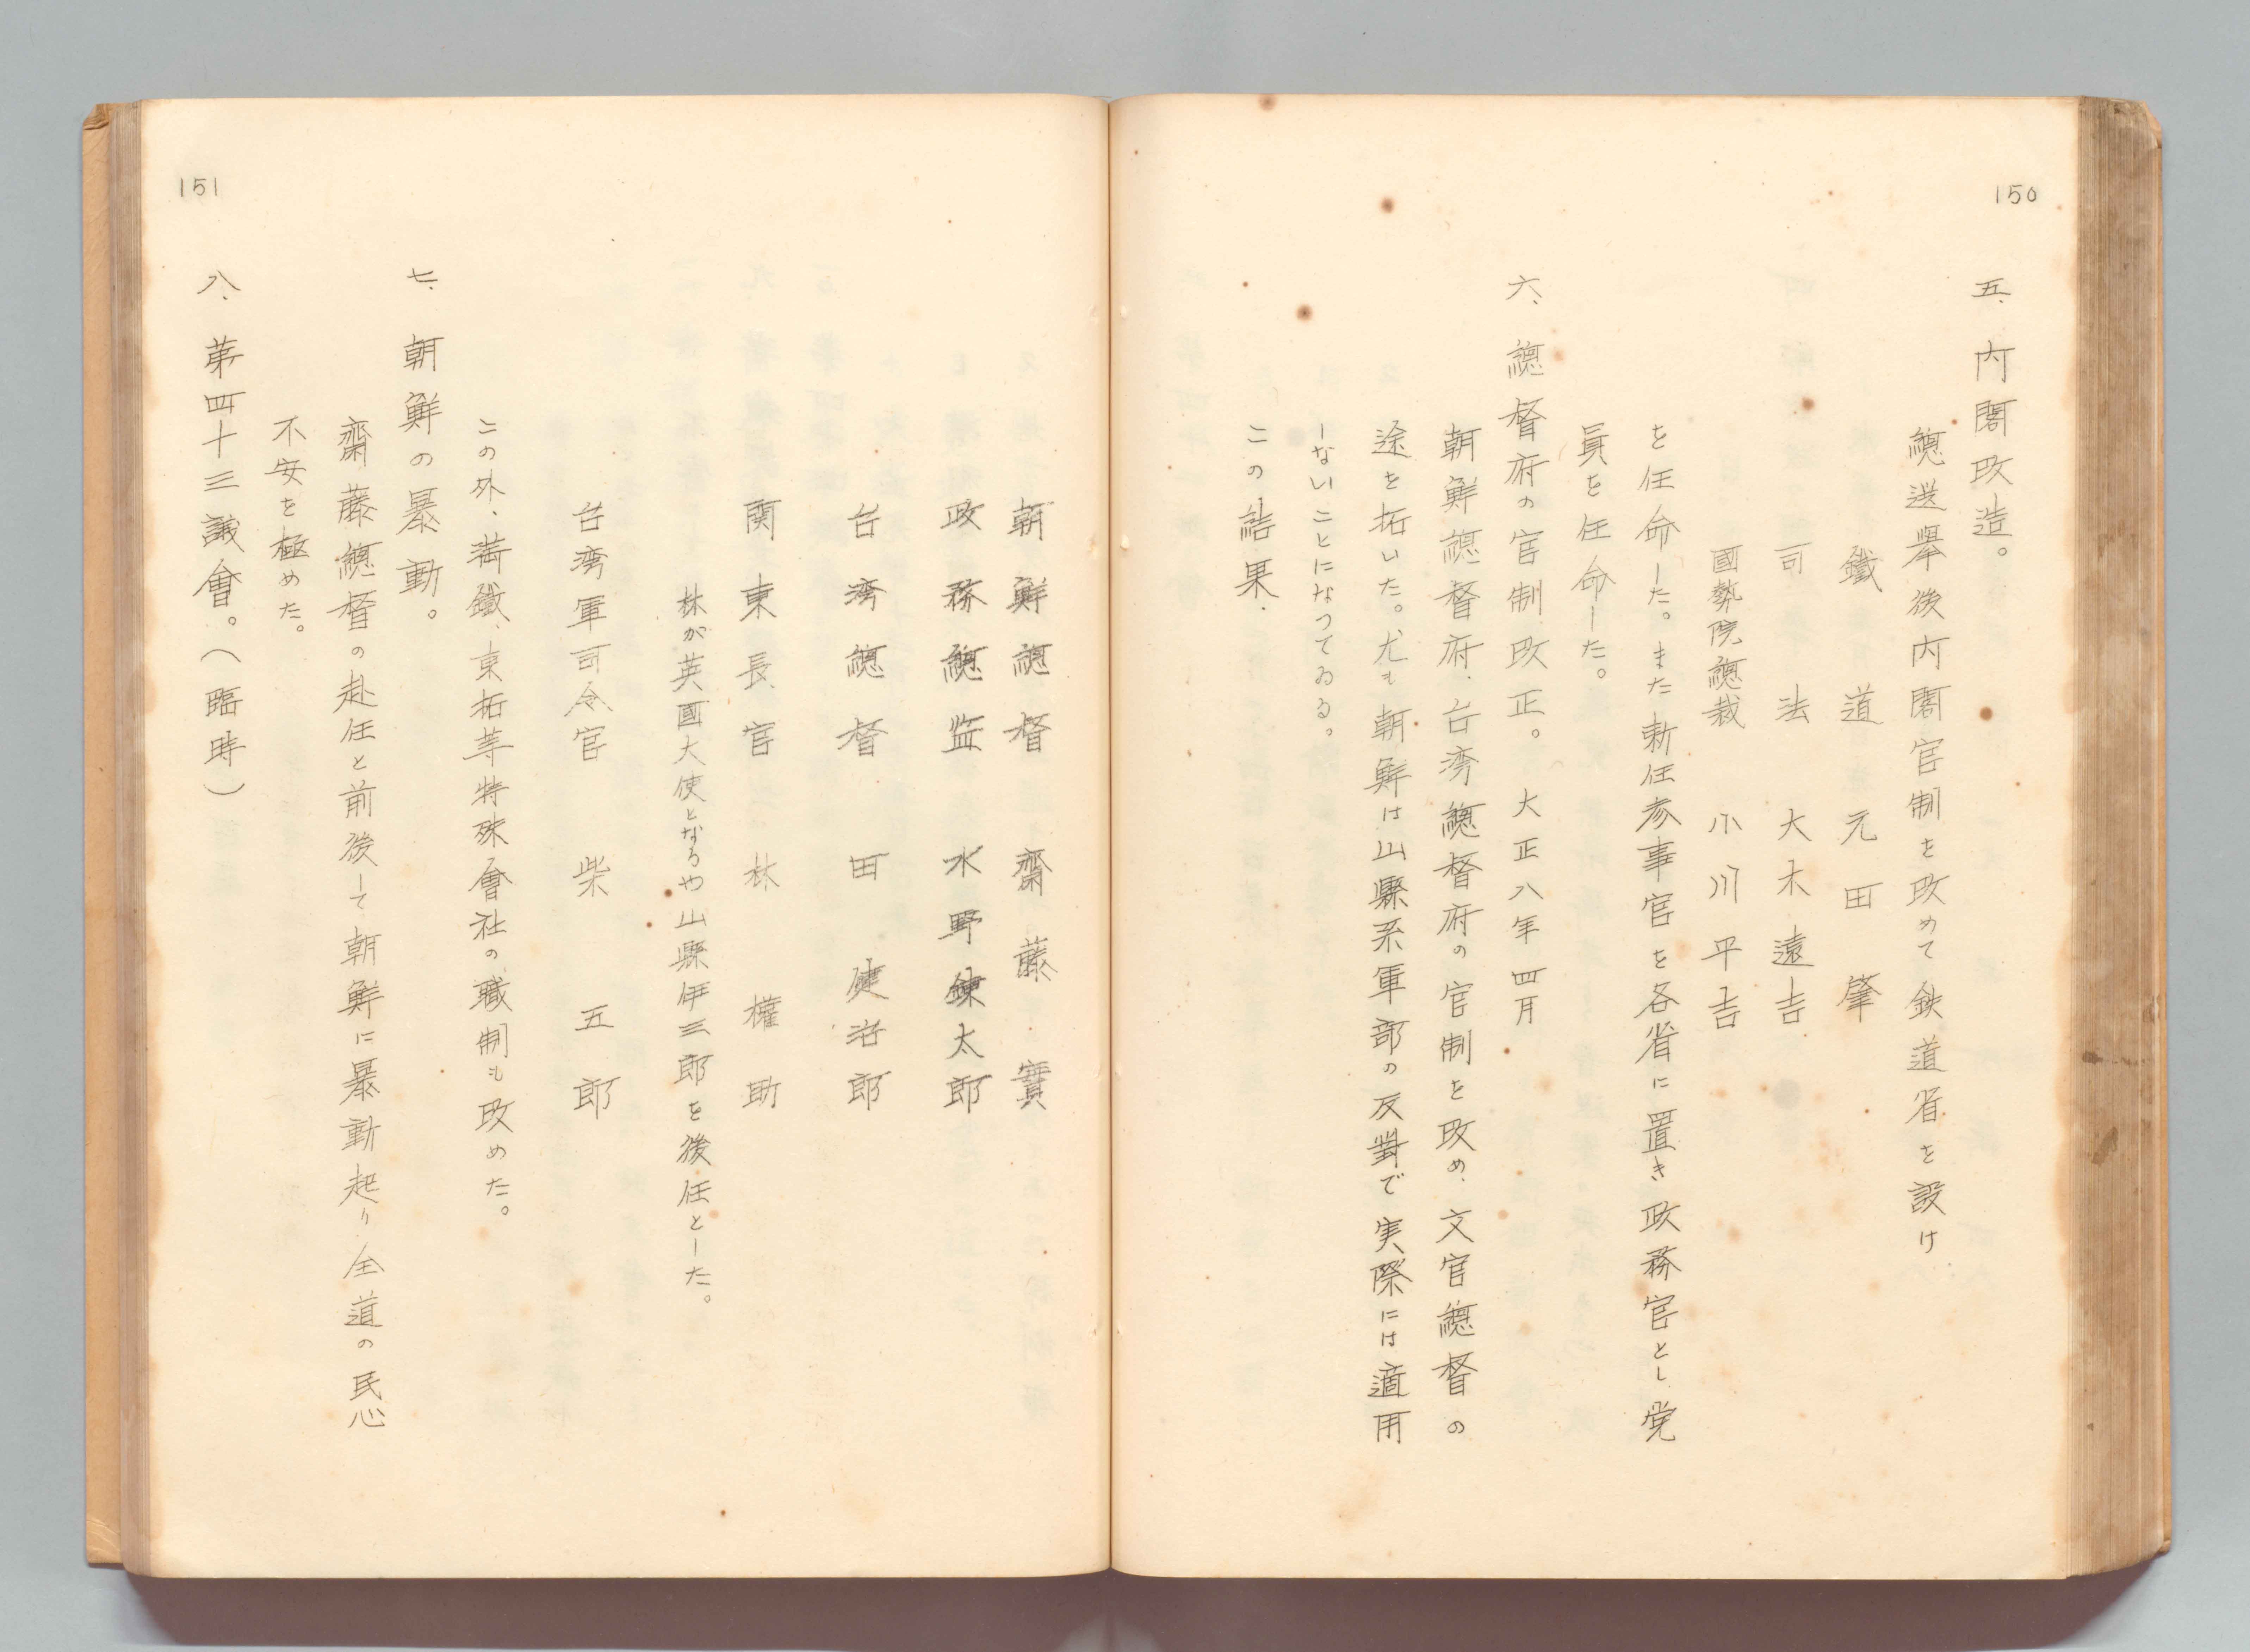 150
五、内閣改造。
總選擧後内閣官制を改めて鉄道省を設け
鐵道 元田肇
司法 大木遠吉
國勢院總裁 小川平吉
を任命した。また新任参事官を各省に置き政務官とし党
員を任命した。
六、總督府の官制改正。大正八年四月
朝鮮總督府、台湾總督府の官制を改め、文官總督の
途を拓いた。尤も朝鮮は山縣系軍部の反對で実際には適用
しないことになつてゐる。
この結果、
朝鮮總督 齋藤實
政務總監 水野錬太郎
台湾總督 田健治郎
関東長官 林権助
林が英國大使となるや山縣伊三郎を後任とした。
台湾軍司令官 柴五郎
この外、満鐵、東拓等特殊會社の職制も改めた。
七、朝鮮の暴動。
齋藤總督の赴任と前後して朝鮮に暴動起り全道の民心
不安を極めた。
八、第四十三議會。(臨時)
151